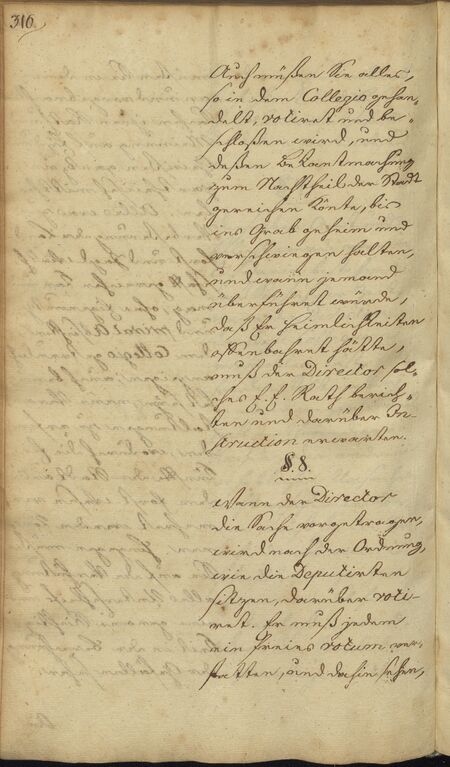 316.
Auch müßen Sie alles,
so in dem Collegio gehan„
delt, votiret und be„
schloßen wird, und
deßen Bekantmachung
zum Nachtheil der Stadt
gereichen könte, bis
ins Grab geheim und
verschwiegen halten,
und wann jemand
überführet würde,
daß Er Heimlichkeiten
offenbahret hätte,
muß der Director sol„
ches E. E. Rath berich„
ten und darüber In„
struction erwarten.
§. 8.
Wann der Director
die Sache vorgetragen,
wird nach der Ordnung,
wie die Deputirten
sitzen, darüber voti„
ret. Er muß jedem
ein freies votum ver„
statten, und dahin sehen,